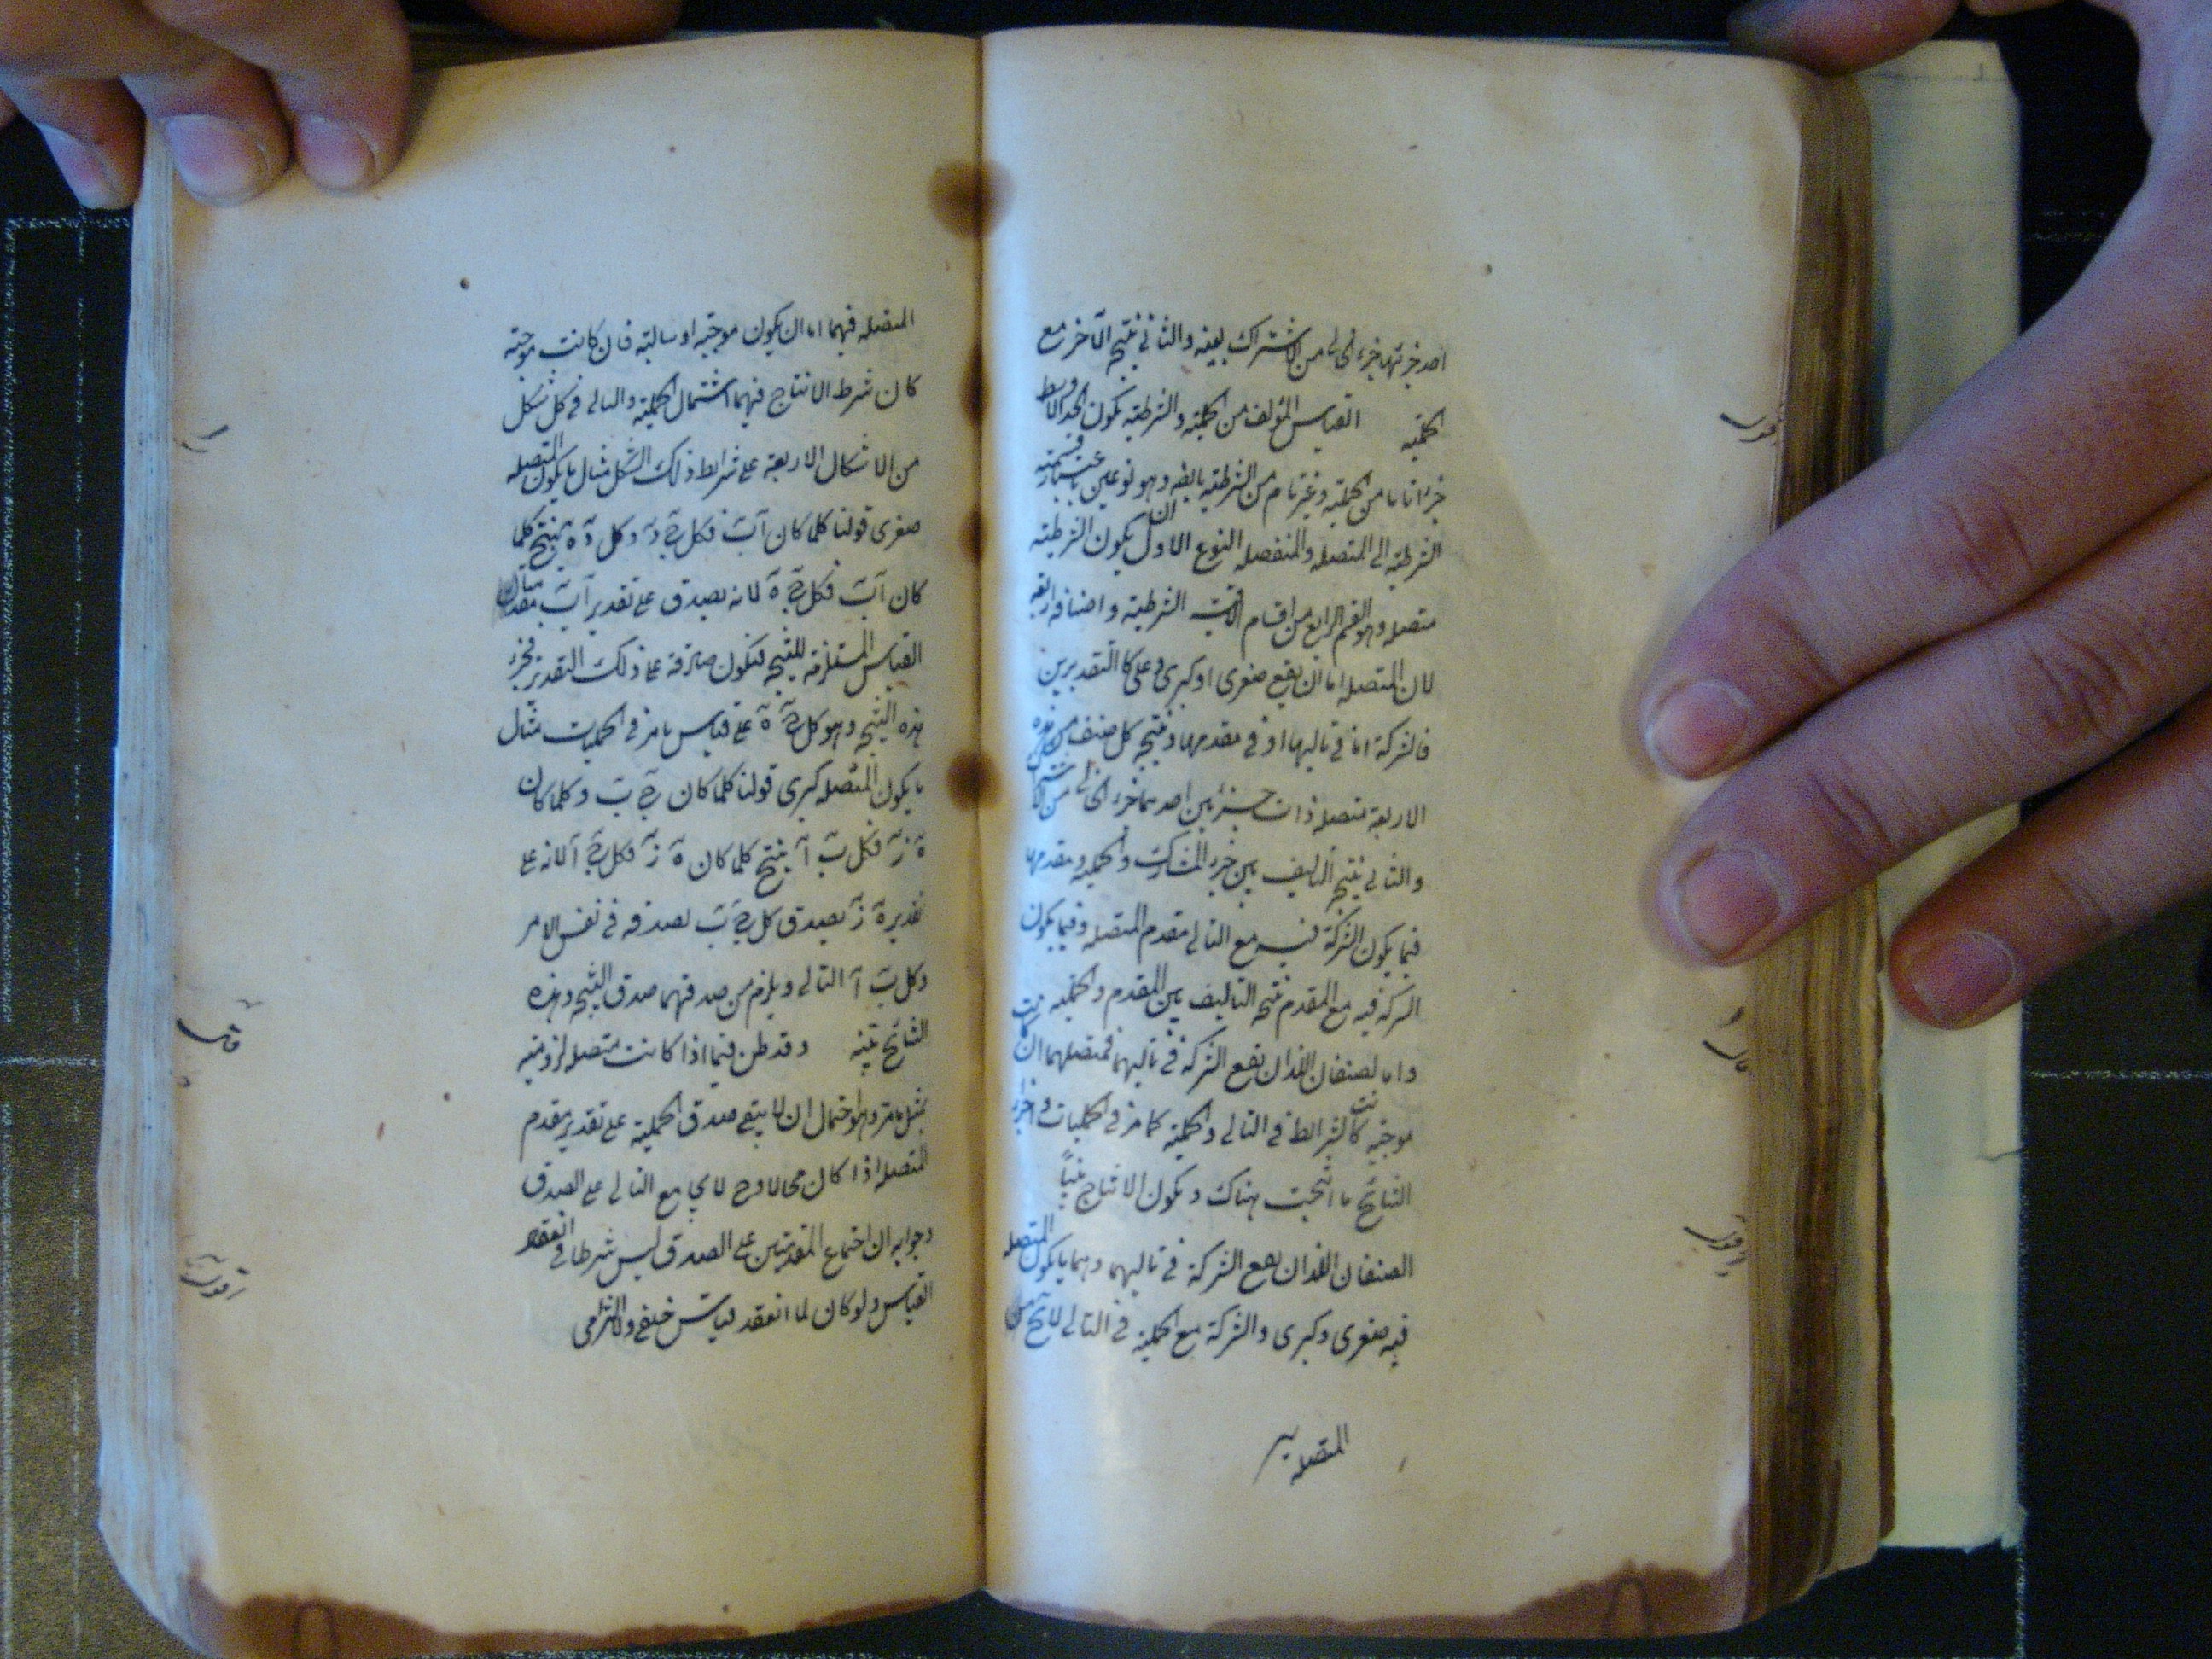 احد جزئيها جزء الخالي من الاشتراك بعينه والثاني نتيجة الآخر مع
الحملية القياس المؤلف من الحملية والشرطية يكون الحد الاوسط
جزءا تاما من الحملية وغير تام من الشرطية بالفه وهو نوعين باعتبار قسمة
الشرطية الى المتصله والمنفصله النوع الاول ان يكون الشرطية
متصله وهو القسم الرابع من اقسام الشرطية واصنافه اربعة
لان المتصله اما ان يقع صغرى او كبرى وعلى كلا التقديرين
فالشركة اما في تاليها او في مقدمها ونتيجة كل صنف من هذه
الاربعة متصله ذات جزئين احدهما جزء الخالي من الاشتراك
والثاني نتيجة التاليف بين جزء المشارك والحملية ومقدمها
فيما يكون الشركة فيه مع التالي مقدم المتصله وفيما يكون
الشركة فيه مع المقدم نتيجة التاليف بين المقدم والحملية
واما الصنفان اللذان يقع الشركة في تاليهما فمتصلهما ان كانت
موجبة كانت الشرائط في التالي والحملية كما مر في الحمليات واجزاء
النتائج ما انتجت هناك ويكون الانتاج بينا
الصنفان اللذان يقع الشركة في تاليهما وهما ما يكون المتصله
فيه صغرى وكبرى والشركة مع الحملية في التالي لا يخ من
المتصله
المتصله فيهما اما ان يكون موجبة او سالبة فان كانت موجبة
كان شرط الانتاج فيهما اشتمال الحملية والتالي في كل شكل
من الاشكال الاربعة على شرائط ذلك الشكل مثال ما يكون المتصله
صغرى قولنا كلما كان آب فكل ج د وكل د ه ينتج كلما
كان آب فكل ج ه لانه يصدق على تقدير آب مقدمتان
القياس المستلزمة للنتيجة فتكون صادقة على ذلك التقدير فجزء
هذه النتيجة وهو كل ج ه على قياس ما مر في الحمليات مثال
ما يكون المتصله كبرى قولنا كلما كان ج ب وكلما كان
ه ز فكل ب آ ينتج كلما كان ه ز فكل ج آ لانه على
تقدير ه ز يصدق كل ج ب لصدقه في نفس الامر
وكل ب آ التالي ويلزم من صدقهما صدق النتيجة وهذه
النتائج بينة وقد طعن فيما اذا كانت متصله لزومية
بمثل ما مر وهو احتمال ان لا يبقى صدق الحملية على تقدير مقدم
المتصله اذا كان محالا وح لا يجامع التالي على الصدق
وجوابه ان اجتماع المقدمتين على الصدق ليس شرطا في انعقاد
القياس ولو كان لما انعقد قياس خلفي والتزامي